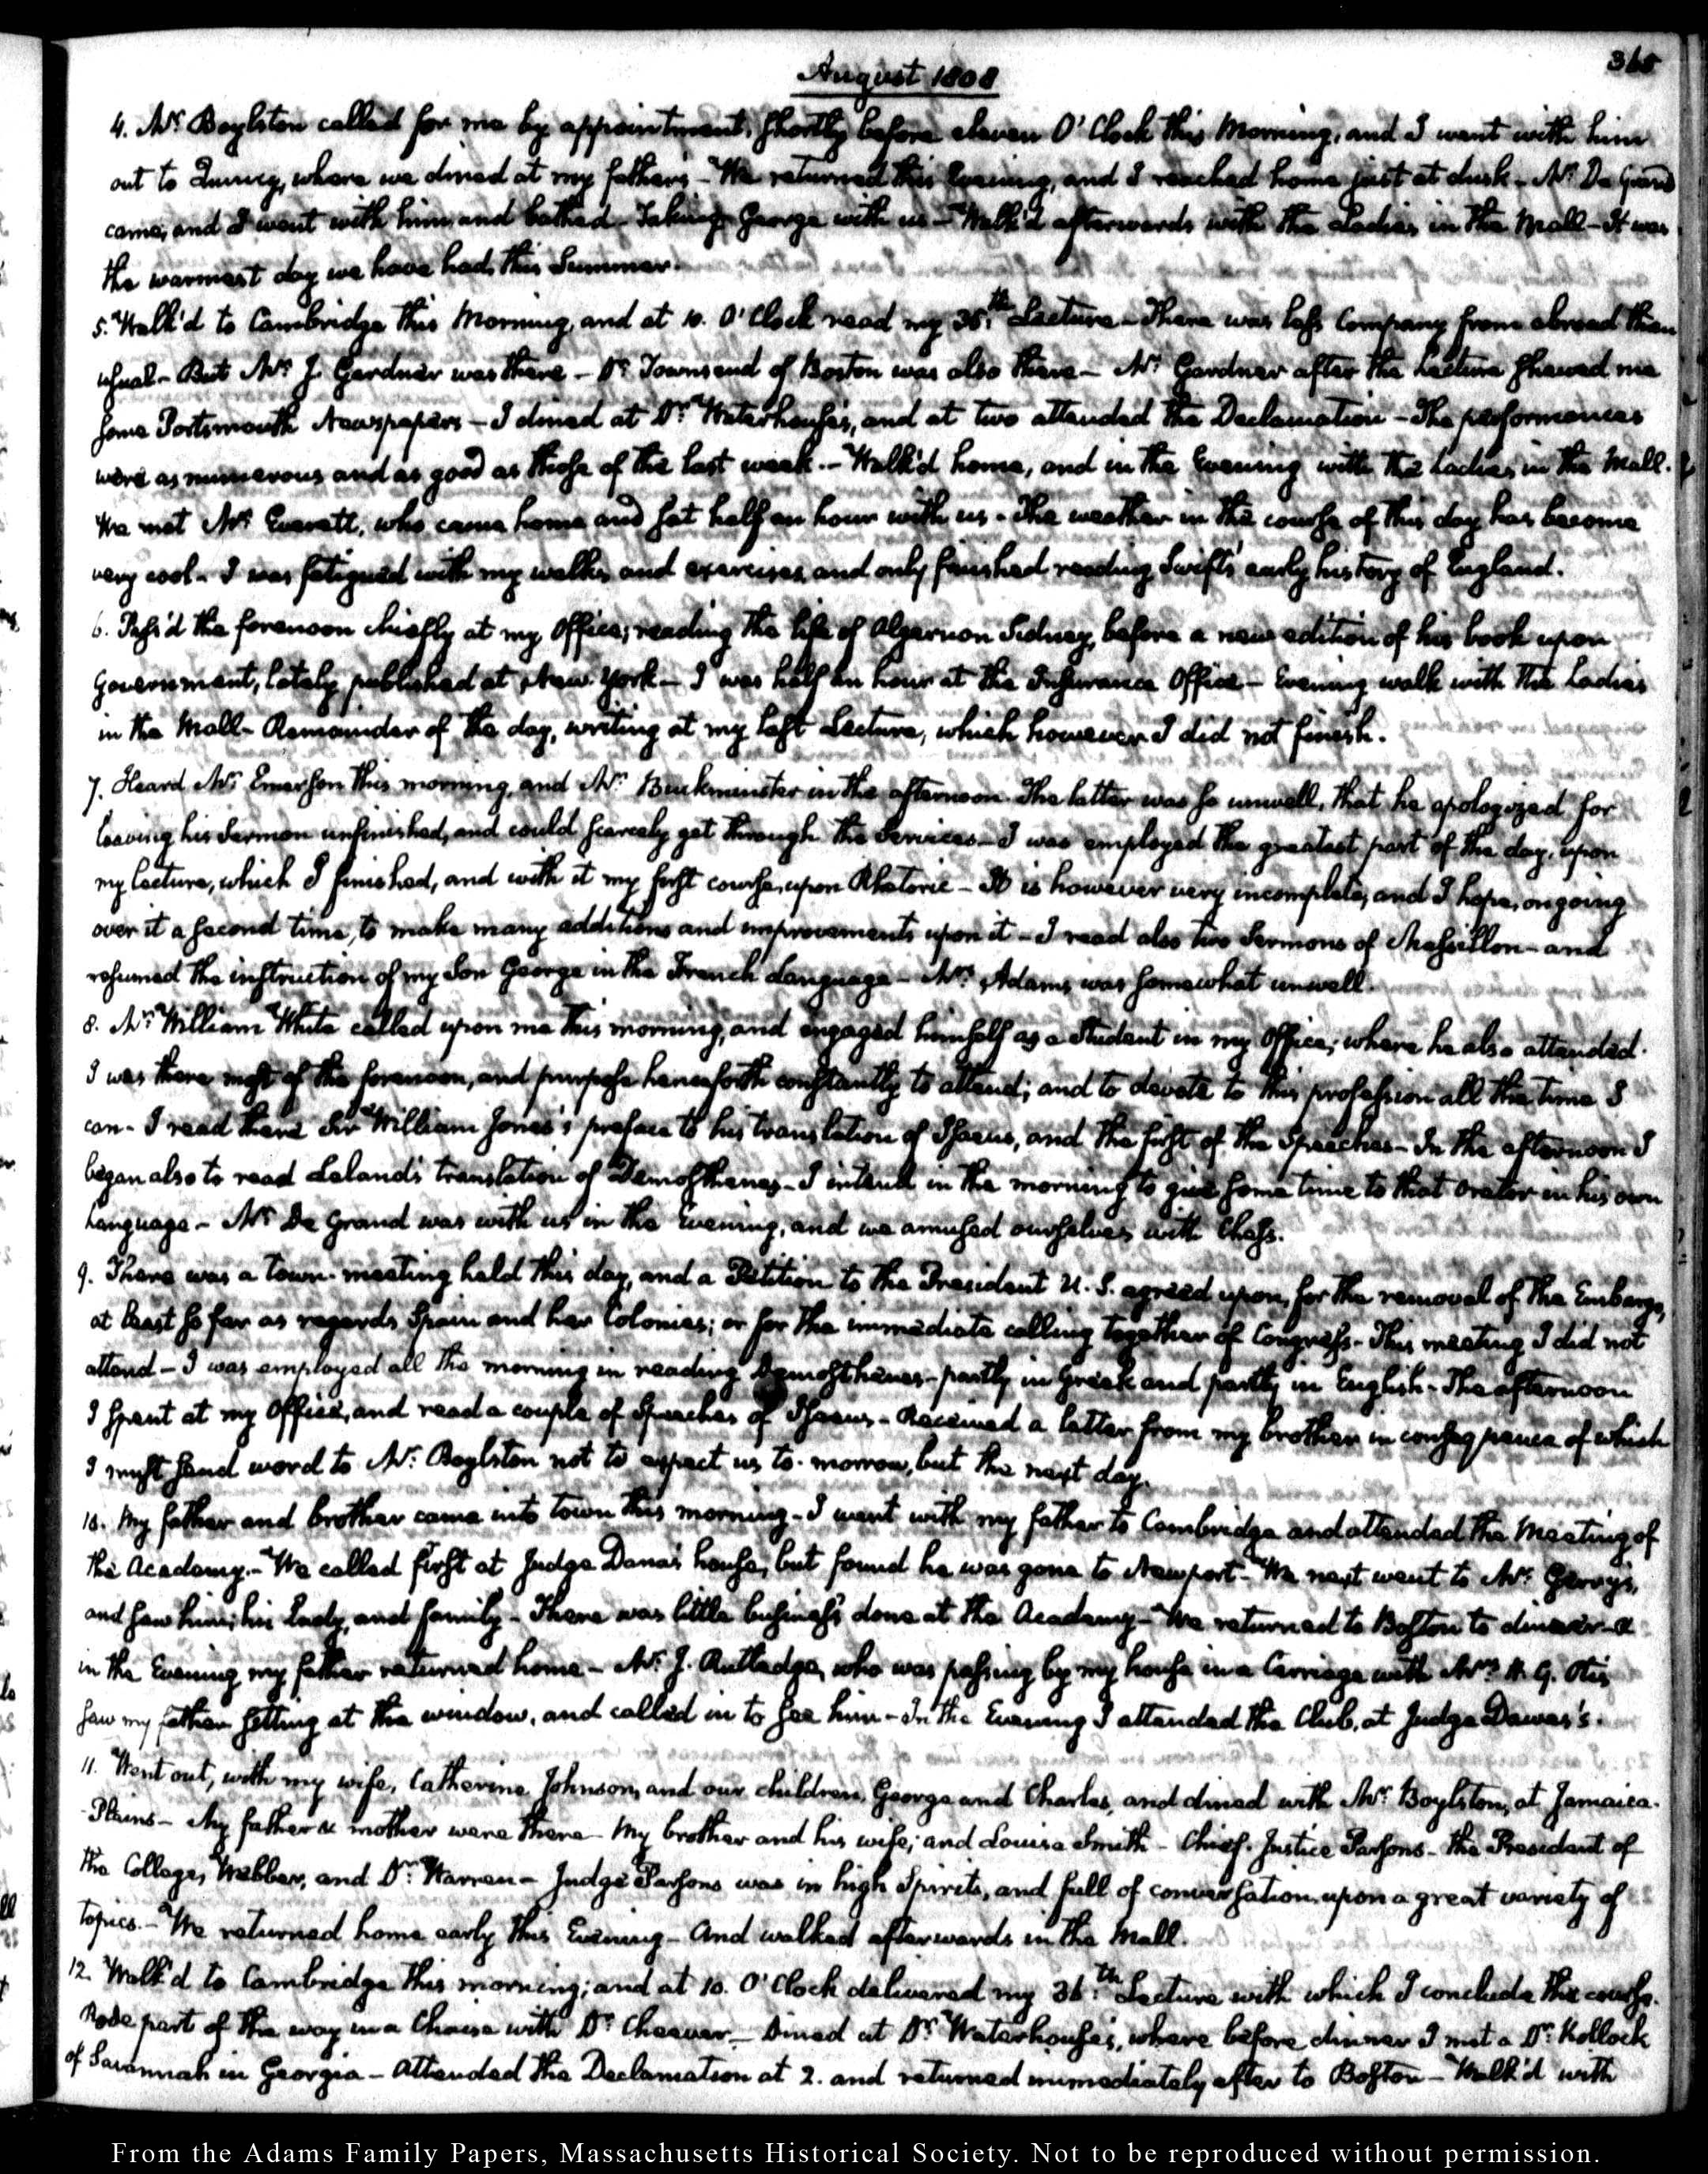 August 1808
365
4. Mr. Boylston called for me by appointment, shortly before eleven O'Clock this Morning, and I went with him
out to Quincy, where we dined at my father's - We returned this Evening, and I reached home just at dusk - Mr. De Grand
came, and I went with him and bathed - Taking George with us - Walk'd afterwards with the Ladies in the Mall - It was
the warmest day we have had, this Summer.
5. Walk'd to Cambridge this Morning, and at 10. O'Clock read my 35th. Lecture - There was less Company from abroad than
usual - But Mr. J. Gardner was there - Dr. Townsend of Boston was also there - Mr. Gardner after the Lecture shewed me
some Portsmouth Newspapers - I dined at Dr. Waterhouse's, and at two attended the Declamation - The performances
were as numerous and as good as those of the last week. - Walk'd home, and in the Evening with the Ladies in the Mall.
We met Mr. Everett, who came home and sat half an hour with us - The weather in the course of this day has become
very cool - I was fatigued with my walks, and exercises, and only finished reading Swift's early history of England.
6. Pass'd the forenoon chiefly at my Office; reading the life of Algernon Sidney, before a new edition of his book upon
Government, lately published at New-York - I was half an hour at the Insurance Office - Evening walk with the Ladies
in the Mall - Remainder of the day, writing at my last Lecture, which however I did not finish.
7. Heard Mr. Emerson this morning, and Mr. Buckminster in the afternoon. The latter was so unwell, that he apologized for
leaving his Sermon unfinished, and could scarcely get through the Services - I was employed the greatest part of the day, upon
my lecture, which I finished, and with it my first course, upon Rhetoric - It is however very incomplete, and I hope, on going
over it a second time, to make many additions and improvements upon it - I read also two Sermons of Massillon - and
resumed the instruction of my Son George in the French Language - Mrs. Adams was somewhat unwell.
8. Mr. William White called upon me this morning, and engaged himself as a Student in my Office; where he also attended.
I was there most of the forenoon, and purpose henceforth constantly to attend; and to devote to this profession all the time I
can - I read there Sir William Jones's preface to his translation of Isaeus, and the first of the Speeches - In the afternoon I
began also to read Leland's translation of Demosthenes - I intend in the morning to give some time to that Orator in his own
Language - Mr. De Grand was with us in the Evening, and we amused ourselves with Chess.
9. There was a town-meeting held this day, and a Petition to the President U.S. agreed upon, for the removal of the Embargo,
at least so far as regards Spain and her Colonies; or for the immediate calling together of Congress - This meeting I did not
attend - I was employed all the morning in reading Demosthenes - partly in Greek and partly in English - The afternoon
I spent at my Office, and read a couple of Speeches of Isaeus - Received a letter from my brother in consequence of which
I must send word to Mr. Boylston not to expect us to-morrow, but the next day.
10. My father and brother came into town this morning - I went with my father to Cambridge and attended the Meeting of
the Academy. - We called first at Judge Dana's house, but found he was gone to Newport - We next went to Mr. Gerry's,
and saw him, his Lady, and family - There was little business done at the Academy - We returned to Boston to dinner -
in the Evening my father returned home - Mr. J. Rutledge, who was passing by my house in a Carriage with Mrs. H. G. Otis
saw my father sitting at the window, and called in to see him - In the Evening I attended the Club, at Judge Dawes's.
11. Went out, with my wife, Catherine Johnson, and our children, George and Charles, and dined with Mr. Boylston, at Jamaica-
Plains - My father & mother were there - My brother and his wife; and Louisa Smith - Chief-Justice Parsons - the President of
the College, Webber, and Dr. Warren - Judge Parsons was in high Spirits, and full of conversation, upon a great variety of
topics. - We returned home early this Evening - And walked afterwards in the Mall.
12. Walk'd to Cambridge this morning; and at 10. O'Clock delivered my 36th. Lecture with which I conclude the course.
Rode part of the way in a Chaise with Dr. Cheever - Dined at Dr. Waterhouse's, where before dinner I met a Dr. Kollock
of Savannah in Georgia - Attended the Declamation at 2. and returned immediately after to Boston - Walk'd with
From the Adams Family Papers, Massachusetts Historical Society. Not to be reproduced without permission.